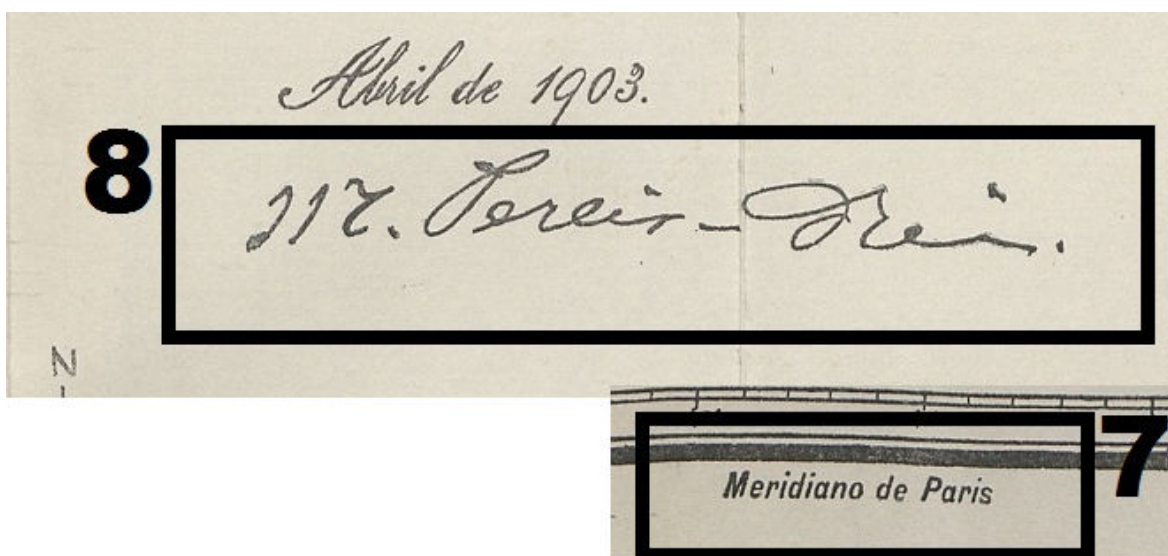 Abril de 1903.
8
M. Pereira-Reis.
N
7
Meridiano de Paris